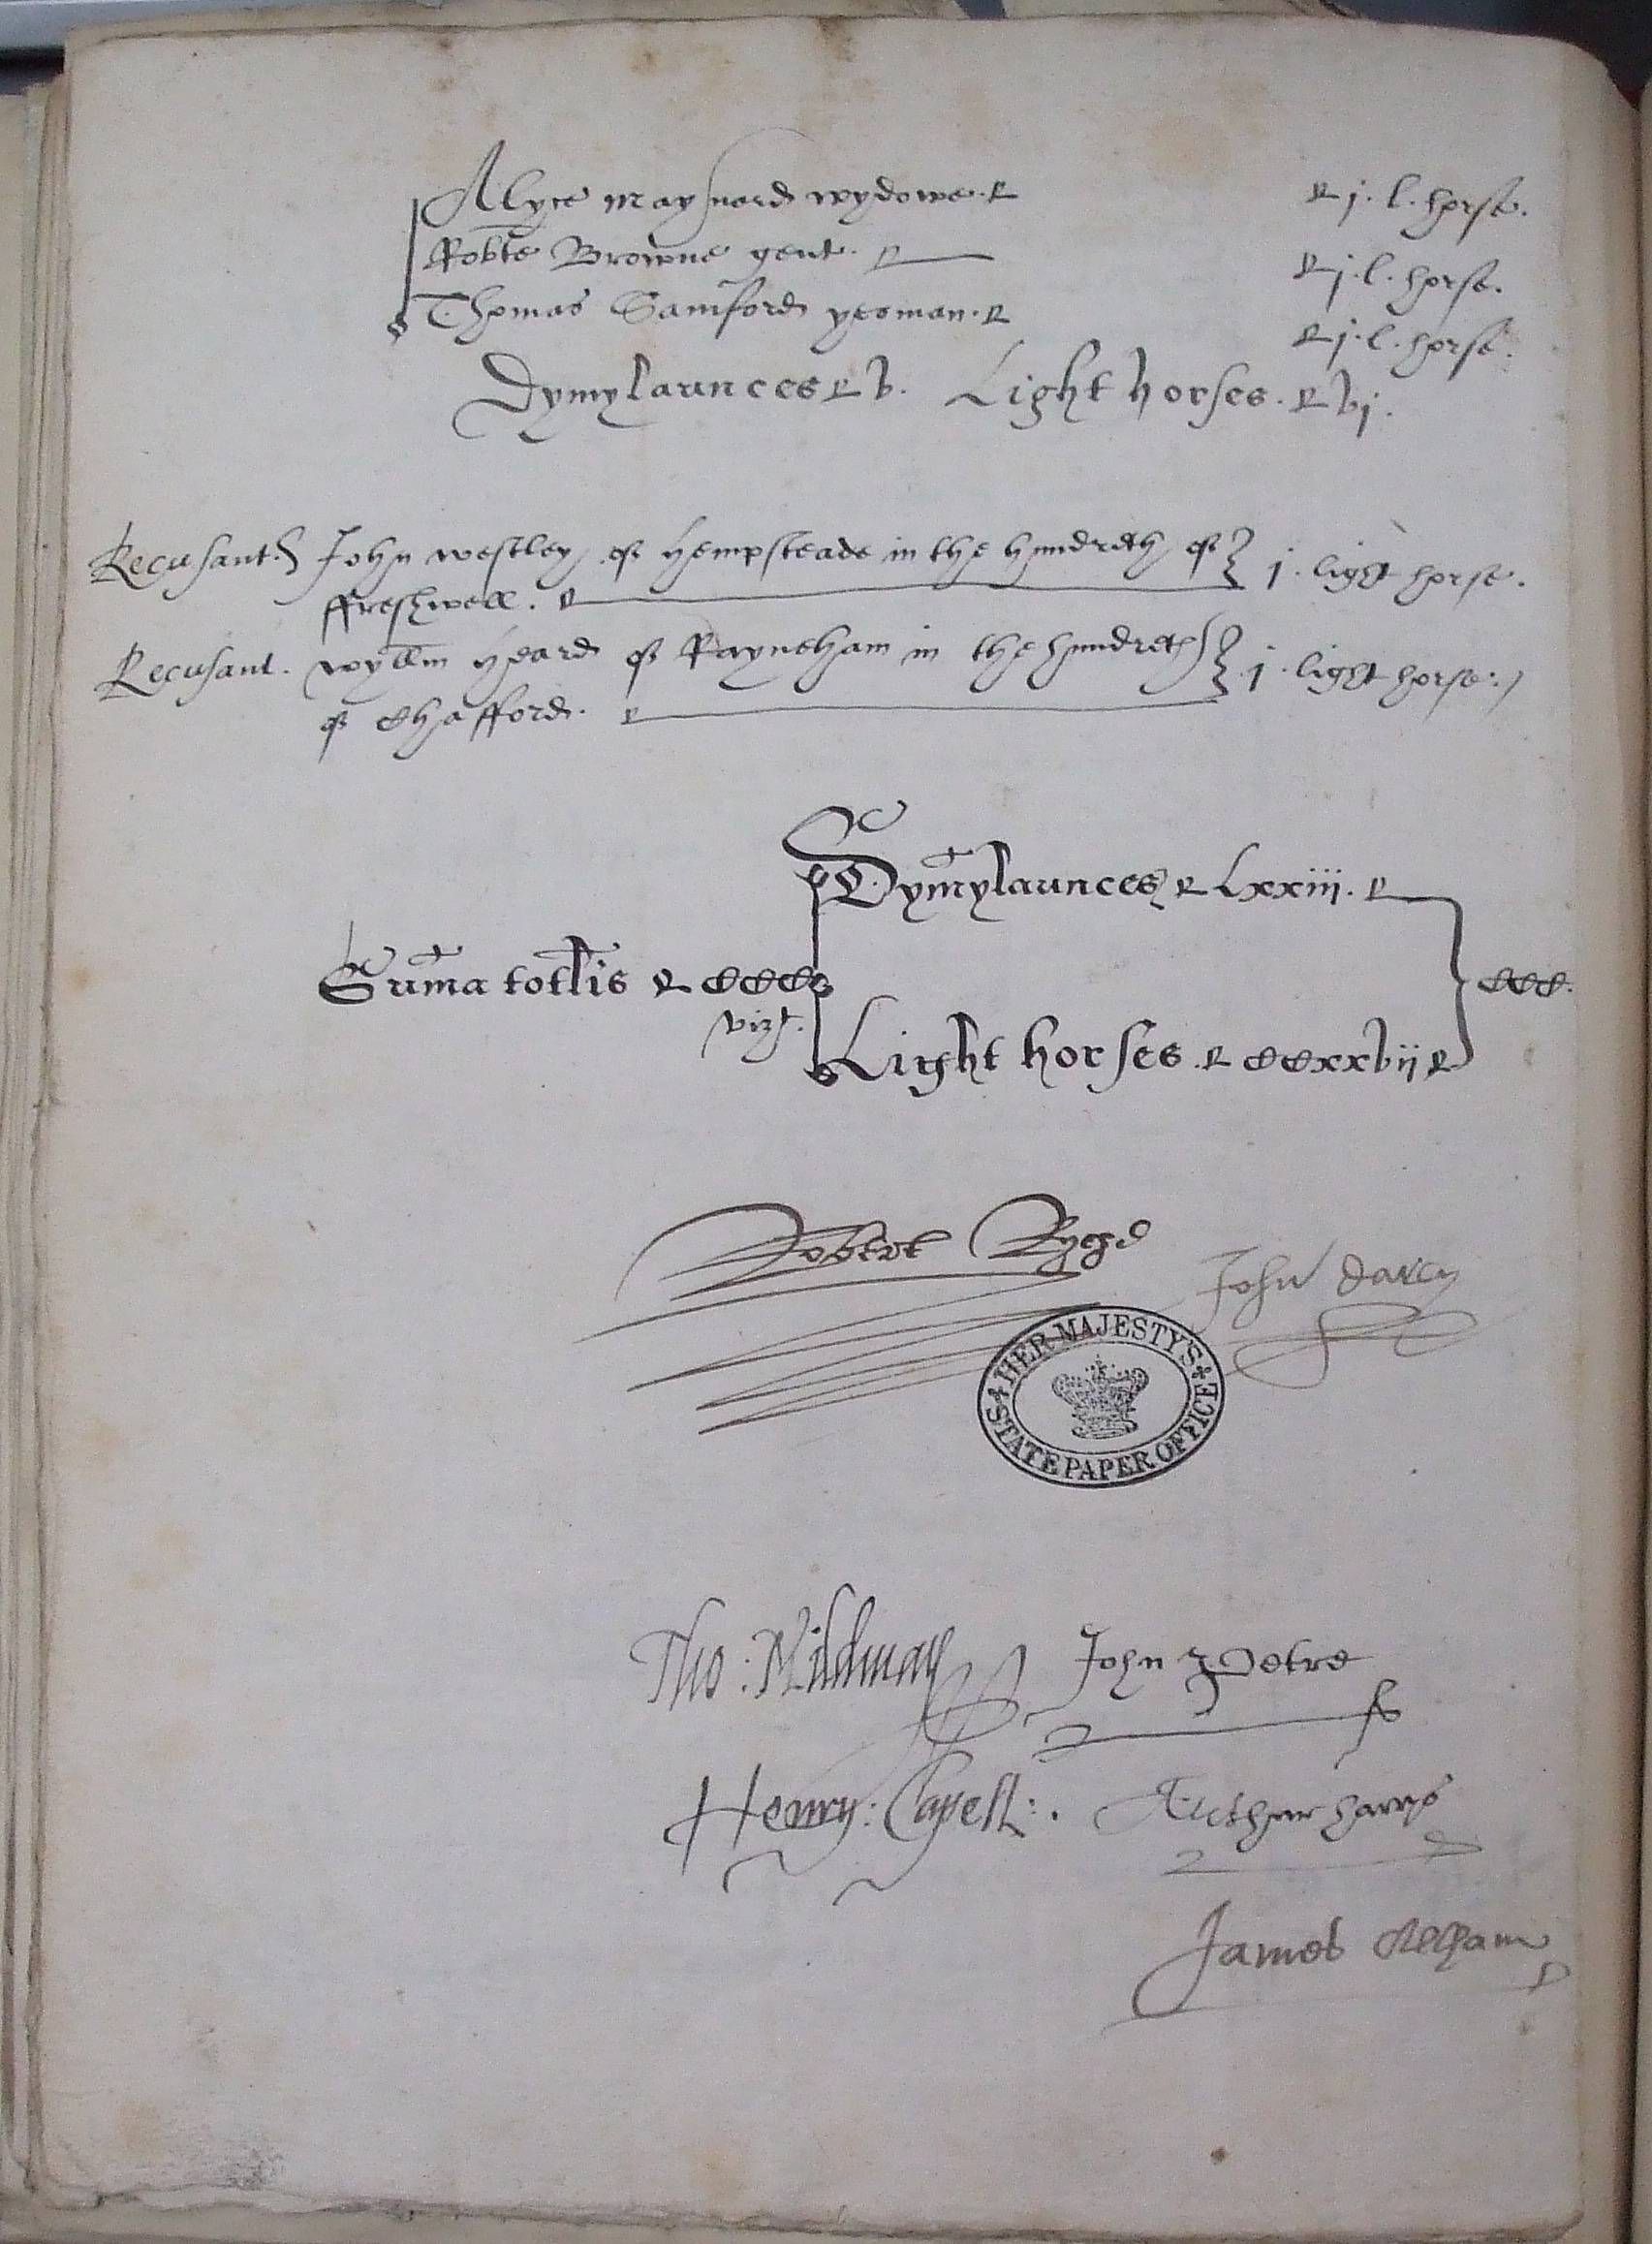 Alyce Maynard wydowe. j. l. horse.
Robte Browne gent. j. l. horse.
Thomas Samford yeoman. j. l. horse.
Dymylaunces v. Light horses. vj.
Recusant. John Westley of Hempsteade in the hundreth of j. light horse.
ffreshwell.
Recusant. Wyllm Heard of Rayneham in the hundreth j. light horse.
of Chafford.
Dymylaunces Lxxiii.
Suma totlis CCC CCC.
vizt.
Light horses. CCxxvii
Robert Ryche
John Darcy
HER MAJESTY'S
STATE PAPER OFFICE
Tho: Mildmay John Petre
Henry: Capell: Arthur Harrys
James Altham